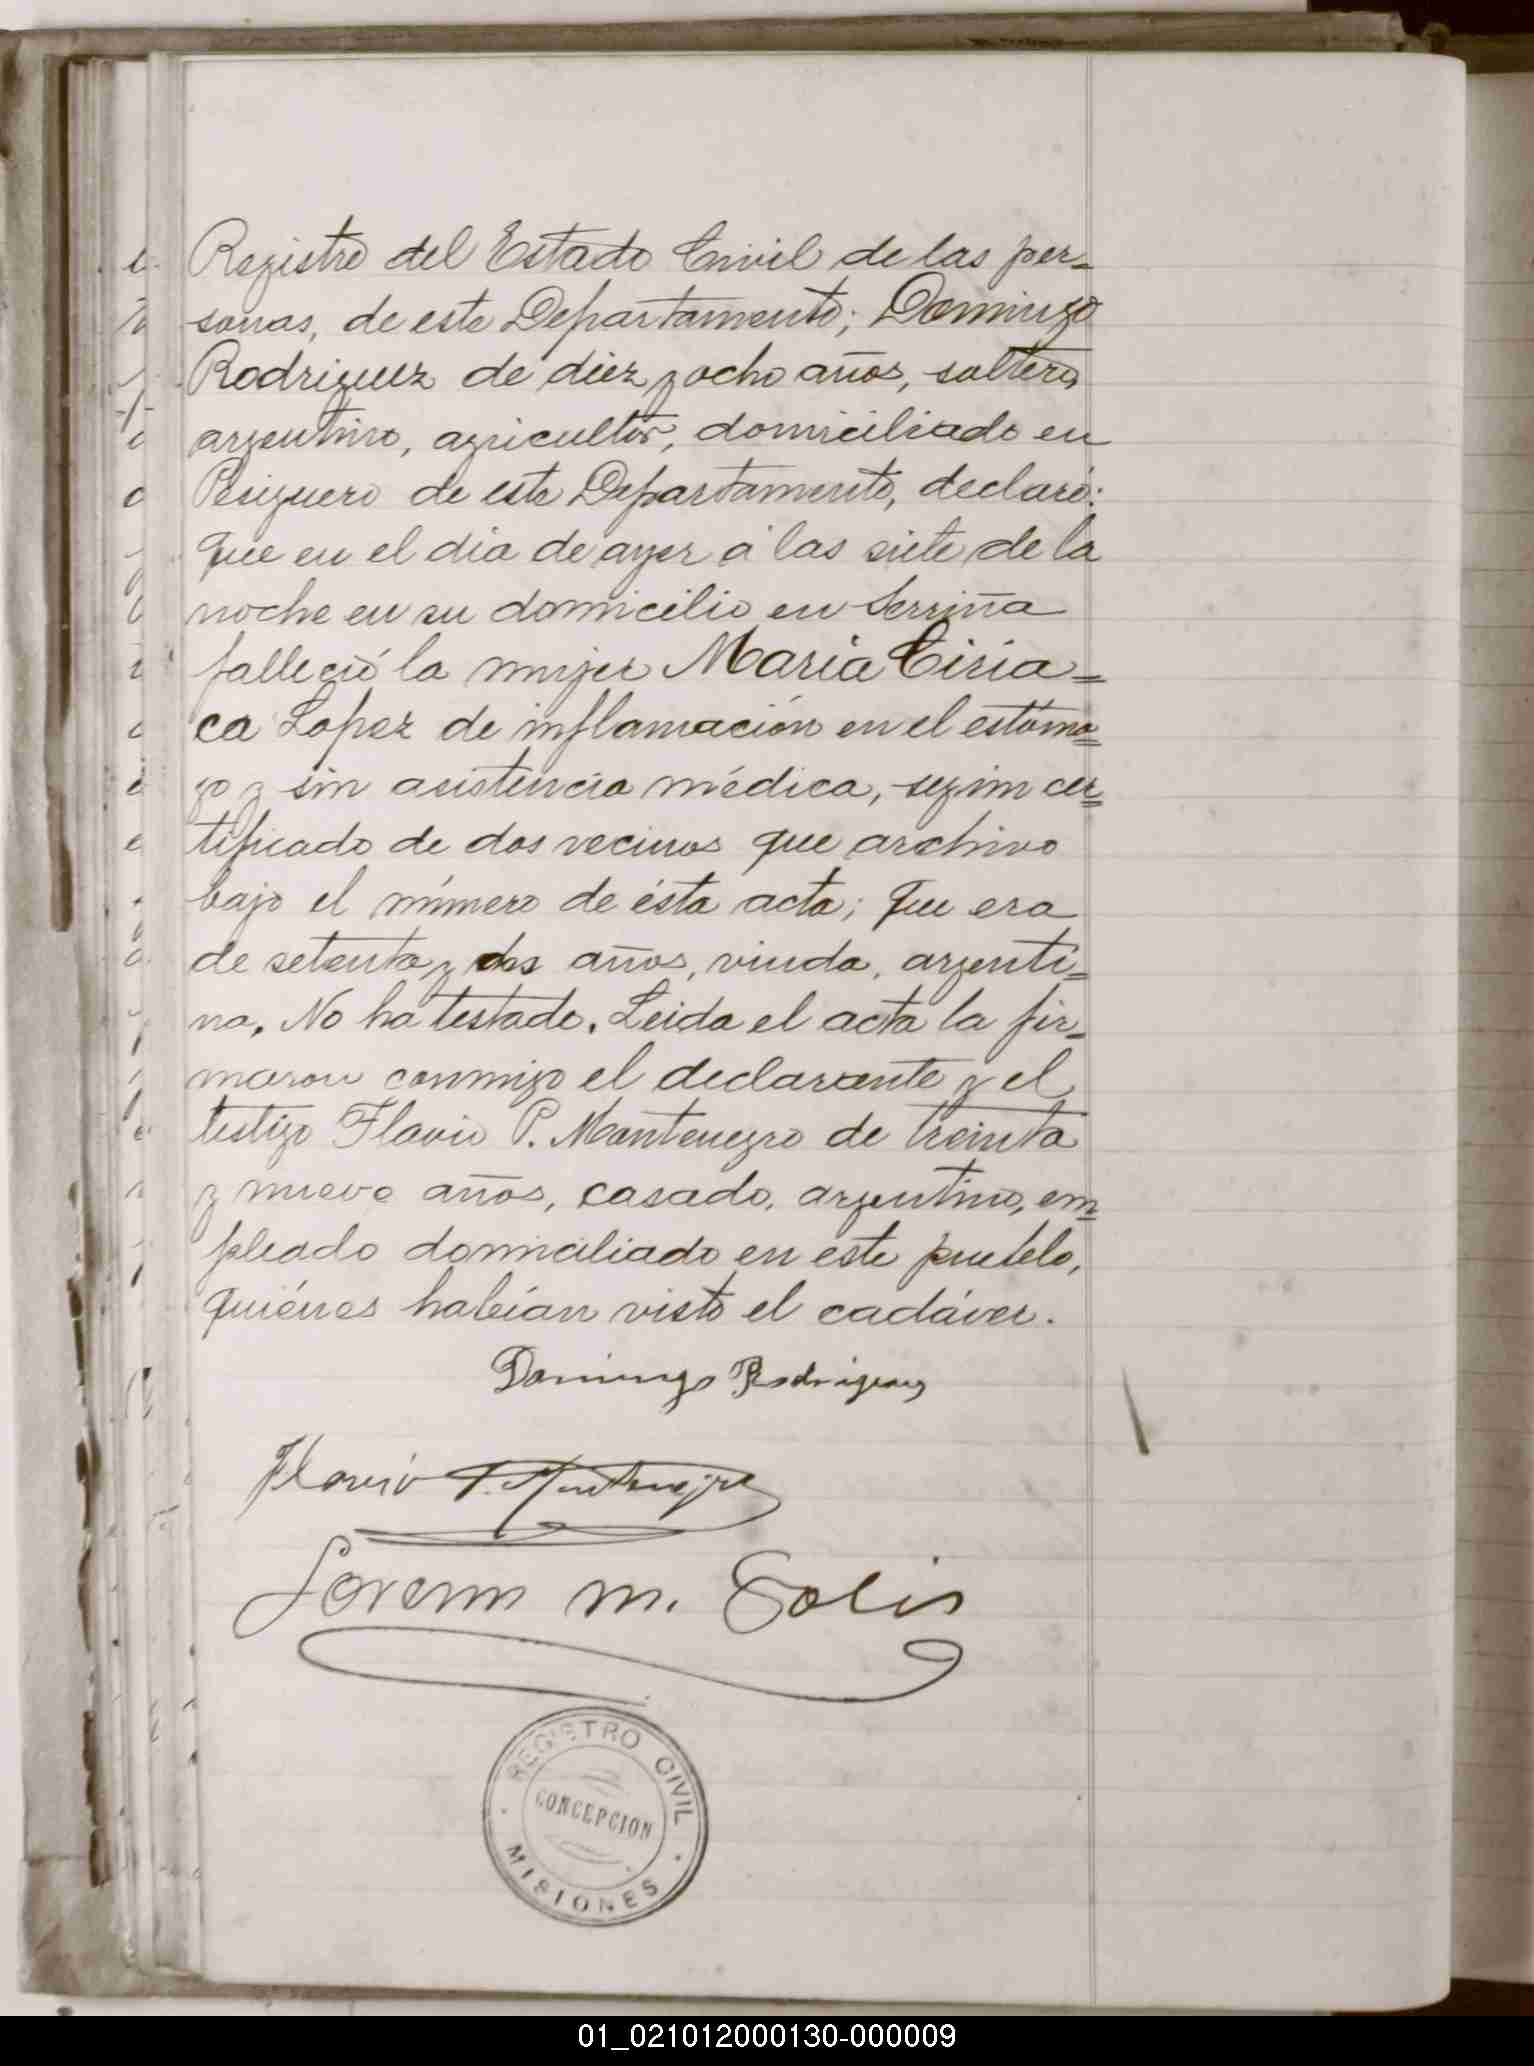 Registro del Estado Civil de las per-
sonas, de este Departamento; Domingo
Rodriguez de diez y ocho años, soltero,
argentino, agricultor, domiciliado en
Pesiguero de este Departamento, declaró:
Que en el dia de ayer á las siete de la
noche en su domicilio en Serriña
falleció la mujer Maria Ciria=
ca Lopez de inflamación en el estóma=
go y sin asistencia médica, segun cer=
tificado de dos vecinos que archivo
bajo el número de ésta acta; Que era
de setenta y dos años, viuda, argenti=
na. No ha testado. Leida el acta la fir=
maron conmigo el declarante y el
testigo Flavio P. Montenegro de treinta
y nueve años, casado, argentino, em=
pleado domiciliado en este pueblo,
quiénes habían visto el cadáver.
Domingo Rodriguez
Flavio P. Montenegro
Lorenzo M. Solis
REGISTRO CIVIL
CONCEPCION
MISIONES
01_021012000130-000009